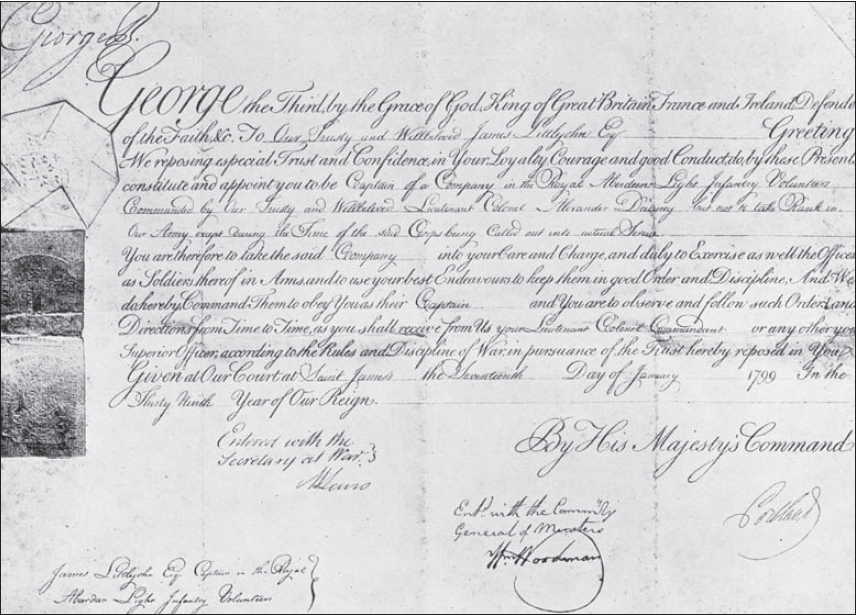 George R.
George the Third, by the Grace of God, King of Great Britain France and Ireland, Defende
of the Faith, &c. To Our Trusty and Wellbeloved James Littlejohn Esq Greeting
We reposing especial Trust and Confidence, in Your Loyalty Courage and good Conduct, do, by these Presents
constitute and appoint you to be Captain of a Company in the Royal Aberdeen Light Infantry Volunteers
Commanded by Our Trusty and Wellbeloved Lieutenant Colonel Alexander but not to take Rank in
Our Army except during the Time of the said Corps being Called out into actual Service
You are therefore to take the said Company into your Care and Charge, and duly to Exercise as well the Officers
as Soldiers thereof in Arms, and to use your best Endeavours to keep them in good Order and Discipline, And We
do hereby Command Them to obey You as their Captain and You are to observe and follow such Orders and
Directions from Time to Time, as you shall receive from Us your Lieutenant Colonel Commandant or any other your
Superior Officer, according to the Rules and Discipline of War, in pursuance of the Trust hereby reposed in You
Given at Our Court at Saint James's the Seventeenth Day of January 1799 In the
Thirty Ninth Year of Our Reign.
By His Majesty's Command
Entered with the
Secretary at War
Portland
Ent.d with the Commis'y
General of Musters
Wm Woodman
James Littlejohn Esq Captain in the Royal
Aberdeen Light Infantry Volunteers